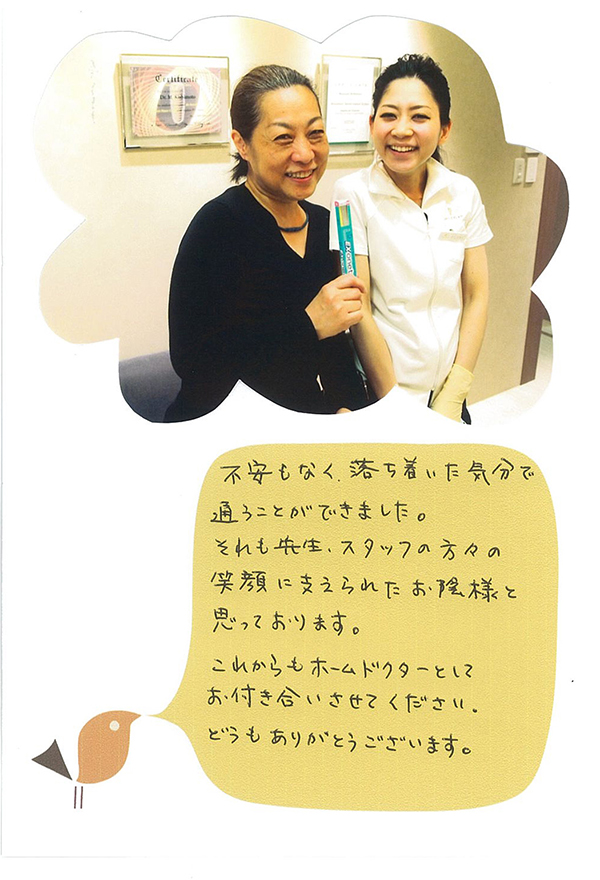 Certificate
不安もなく、落ち着いた気分で
通うことができました。
それも先生、スタッフの方々の
笑顔に支えられたお陰様と
思っております。
これからもホームドクターとして
お付き合いさせてください。
どうもありがとうございます。